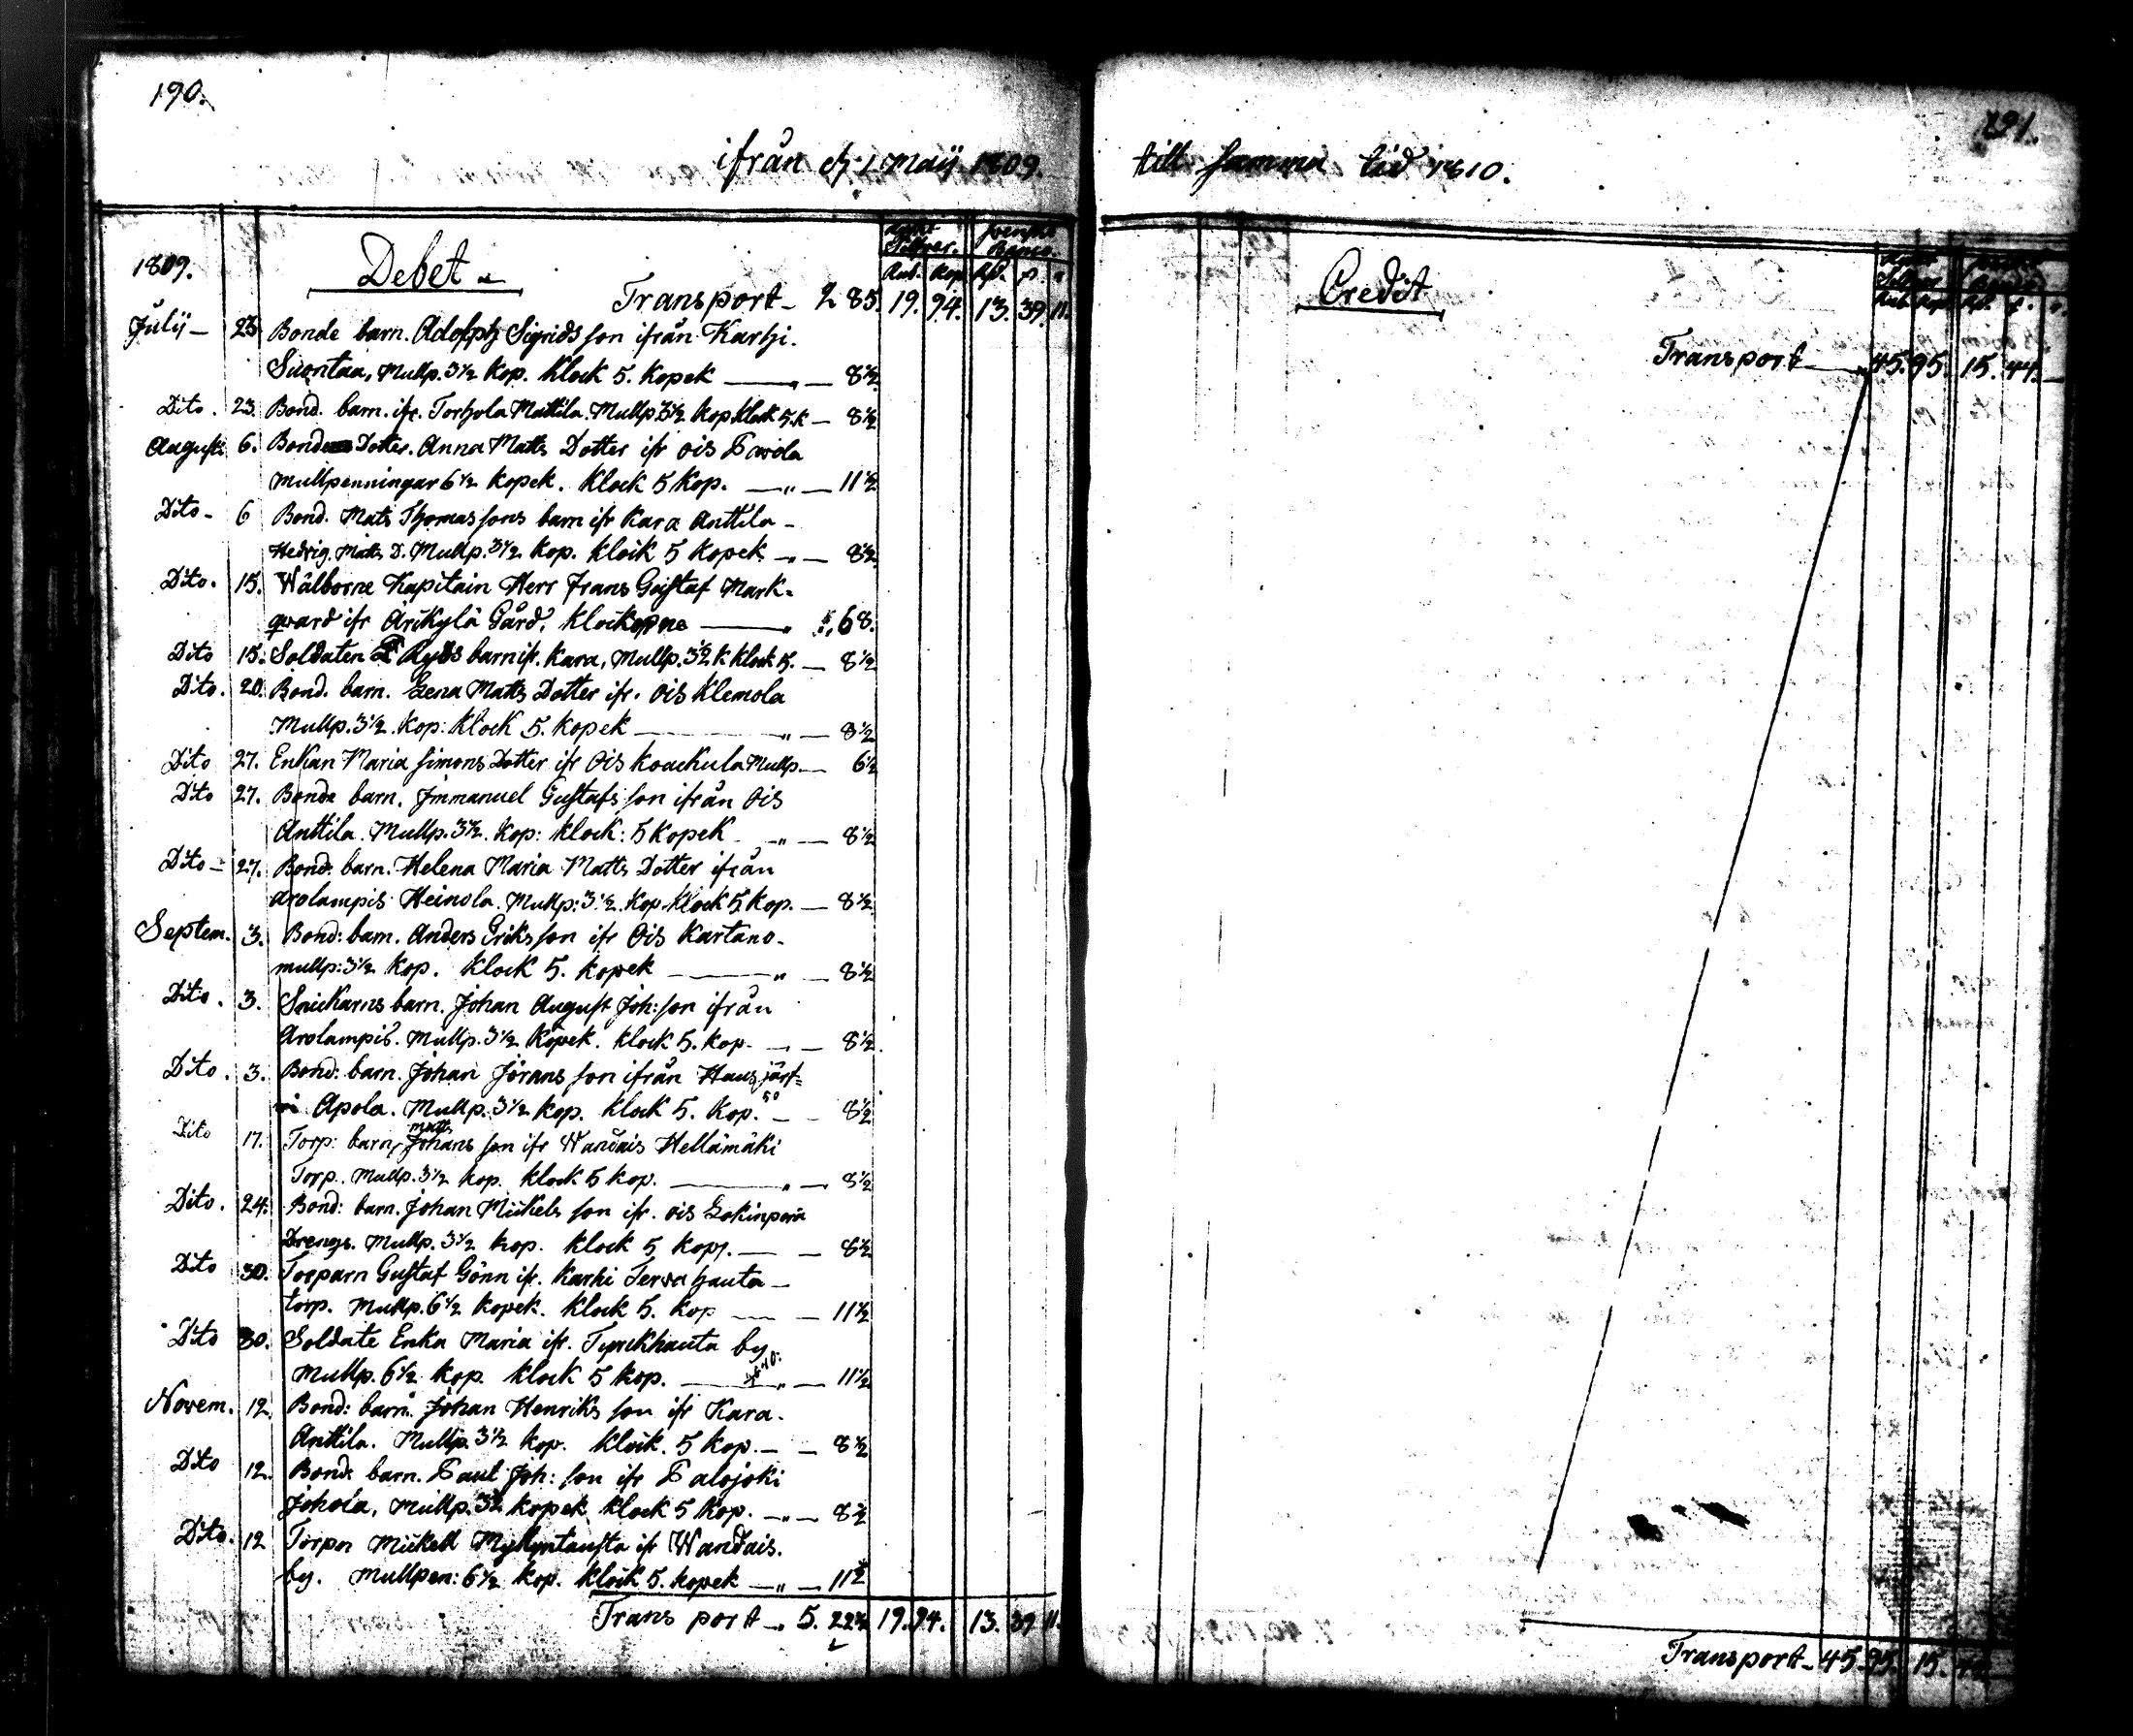 190.
ifrån d. 1 Maij 1809.
1809.
Debet
Silfver. Banco.
Rub. Kop.
Transport - 2 85. 19. 94. 13. 39. 11.
Julij - 23 Bonde barn. Adolph Sigrids son ifrån Karhi.
Suontaa, Mullp. 3½ Kop. Klock 5. Kopek — " — 8½
Dito. 23. Bond. barn. ifr. Torhola Mattila. Mullp 3½ Kop Klock 5. K — 8½
August. 6. Bonde Dotter. Anna Matts Dotter ifr Ois Pavola
mullpenningar 6½ Kopek. Klock 5 Kop. — " — 11½
Dito - 6 Bond. Mats Thomas sons barn ifr Kara Anttila -
Hedvig. Matts D. Mullp. 3½ Kop. Klock 5 Kopek - " — 8½
Dito. 15. Wälborne Kapitain Herr Frans Gustaf Mark-
qvard ifr Arikylä Gård. Klockorna — " 68.
Dito 15. Soldaten Ryds barn ifr. Kara, Mullp. 3½ K Klock 5. — 8½
Dito. 20. Bond. barn. Lena Matts Dotter ifr. Ois Klemola
Mullp. 3½. Kop: Klock 5. Kopek — " — 8½
Dito 27. Enkan Maria Simons Dotter ifr Ois Mullp. — 6½
Dito 27. Bonde barn. Immanuel Gustafs son ifrån Ois
Anttila. Mullp. 3½. Kop: Klock: 5 Kopek - " — 8½
Dito - 27. Bond. barn. Helena Maria Matts Dotter ifrån
Arolampis Heinola. Mullp: 3½. Kop Klock 5 Kop. — 8½
Septem. 3. Bond: barn. Anders Eriks son ifr Ois Kartano.
mullp: 3½ Kop. Klock 5. Kopek — " — 8½
Dito. 3. Snickarns barn. Johan August Joh: son ifrån
Arolampis. Mullp. 3½ Kopek. Klock 5. Kop. — — 8½
Dito. 3. Bond: barn. Johan Jörans son ifrån Hausjärf-
vi Apola. Mullp. 3½ Kop. Klock 5. Kop. — 8½
Dito 17. Torp: barn, Matts Johans son ifr Wandais Hellämäki
Torp. Mullp. 3½ Kop. Klock 5 Kop. — " — 8½
Dito. 24. Bond: barn. Johan Mickels son ifr. Ois
Drengs. Mullp. 3½ Kop. Klock 5 Kop. — — 8½
Dito 30. Torparn Gustaf Gönn ifr. Karhi Tervahauta -
torp. Mullp. 6½ Kopek. Klock 5. Kop — — 11½
Dito 30. Soldate Enka Maria ifr. Tyrckhauta by
Mullp. 6½ Kop. Klock 5 Kop. — " — 11½
Novem. 12. Bond: barn. Johan Henriks son ifr Kara.
Anttila. Mullp. 3½ Kop. Klock. 5 Kop. — — 8½
Dito 12. Bond: barn. Paul Joh: son ifr Palojoki
Johola, Mullp. 3½ Kopek Klock 5 Kop. — " — 8½
Dito. 12 Torpn Mickell ifr Wandais.
by. Mullpen: 6½ Kop. Klock 5. Kopek — " — 11½
Transport - 5. 22½ 19. 94. 13. 39 11.
191.
till samma tid 1810.
Credit
Silfver Banco
Transport — 45. 95. 15. 44. —
Transport - 45 95. 15. 44